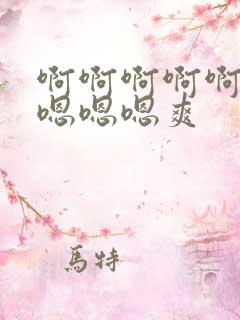 啊啊啊啊啊
嗯嗯嗯爽
馬特